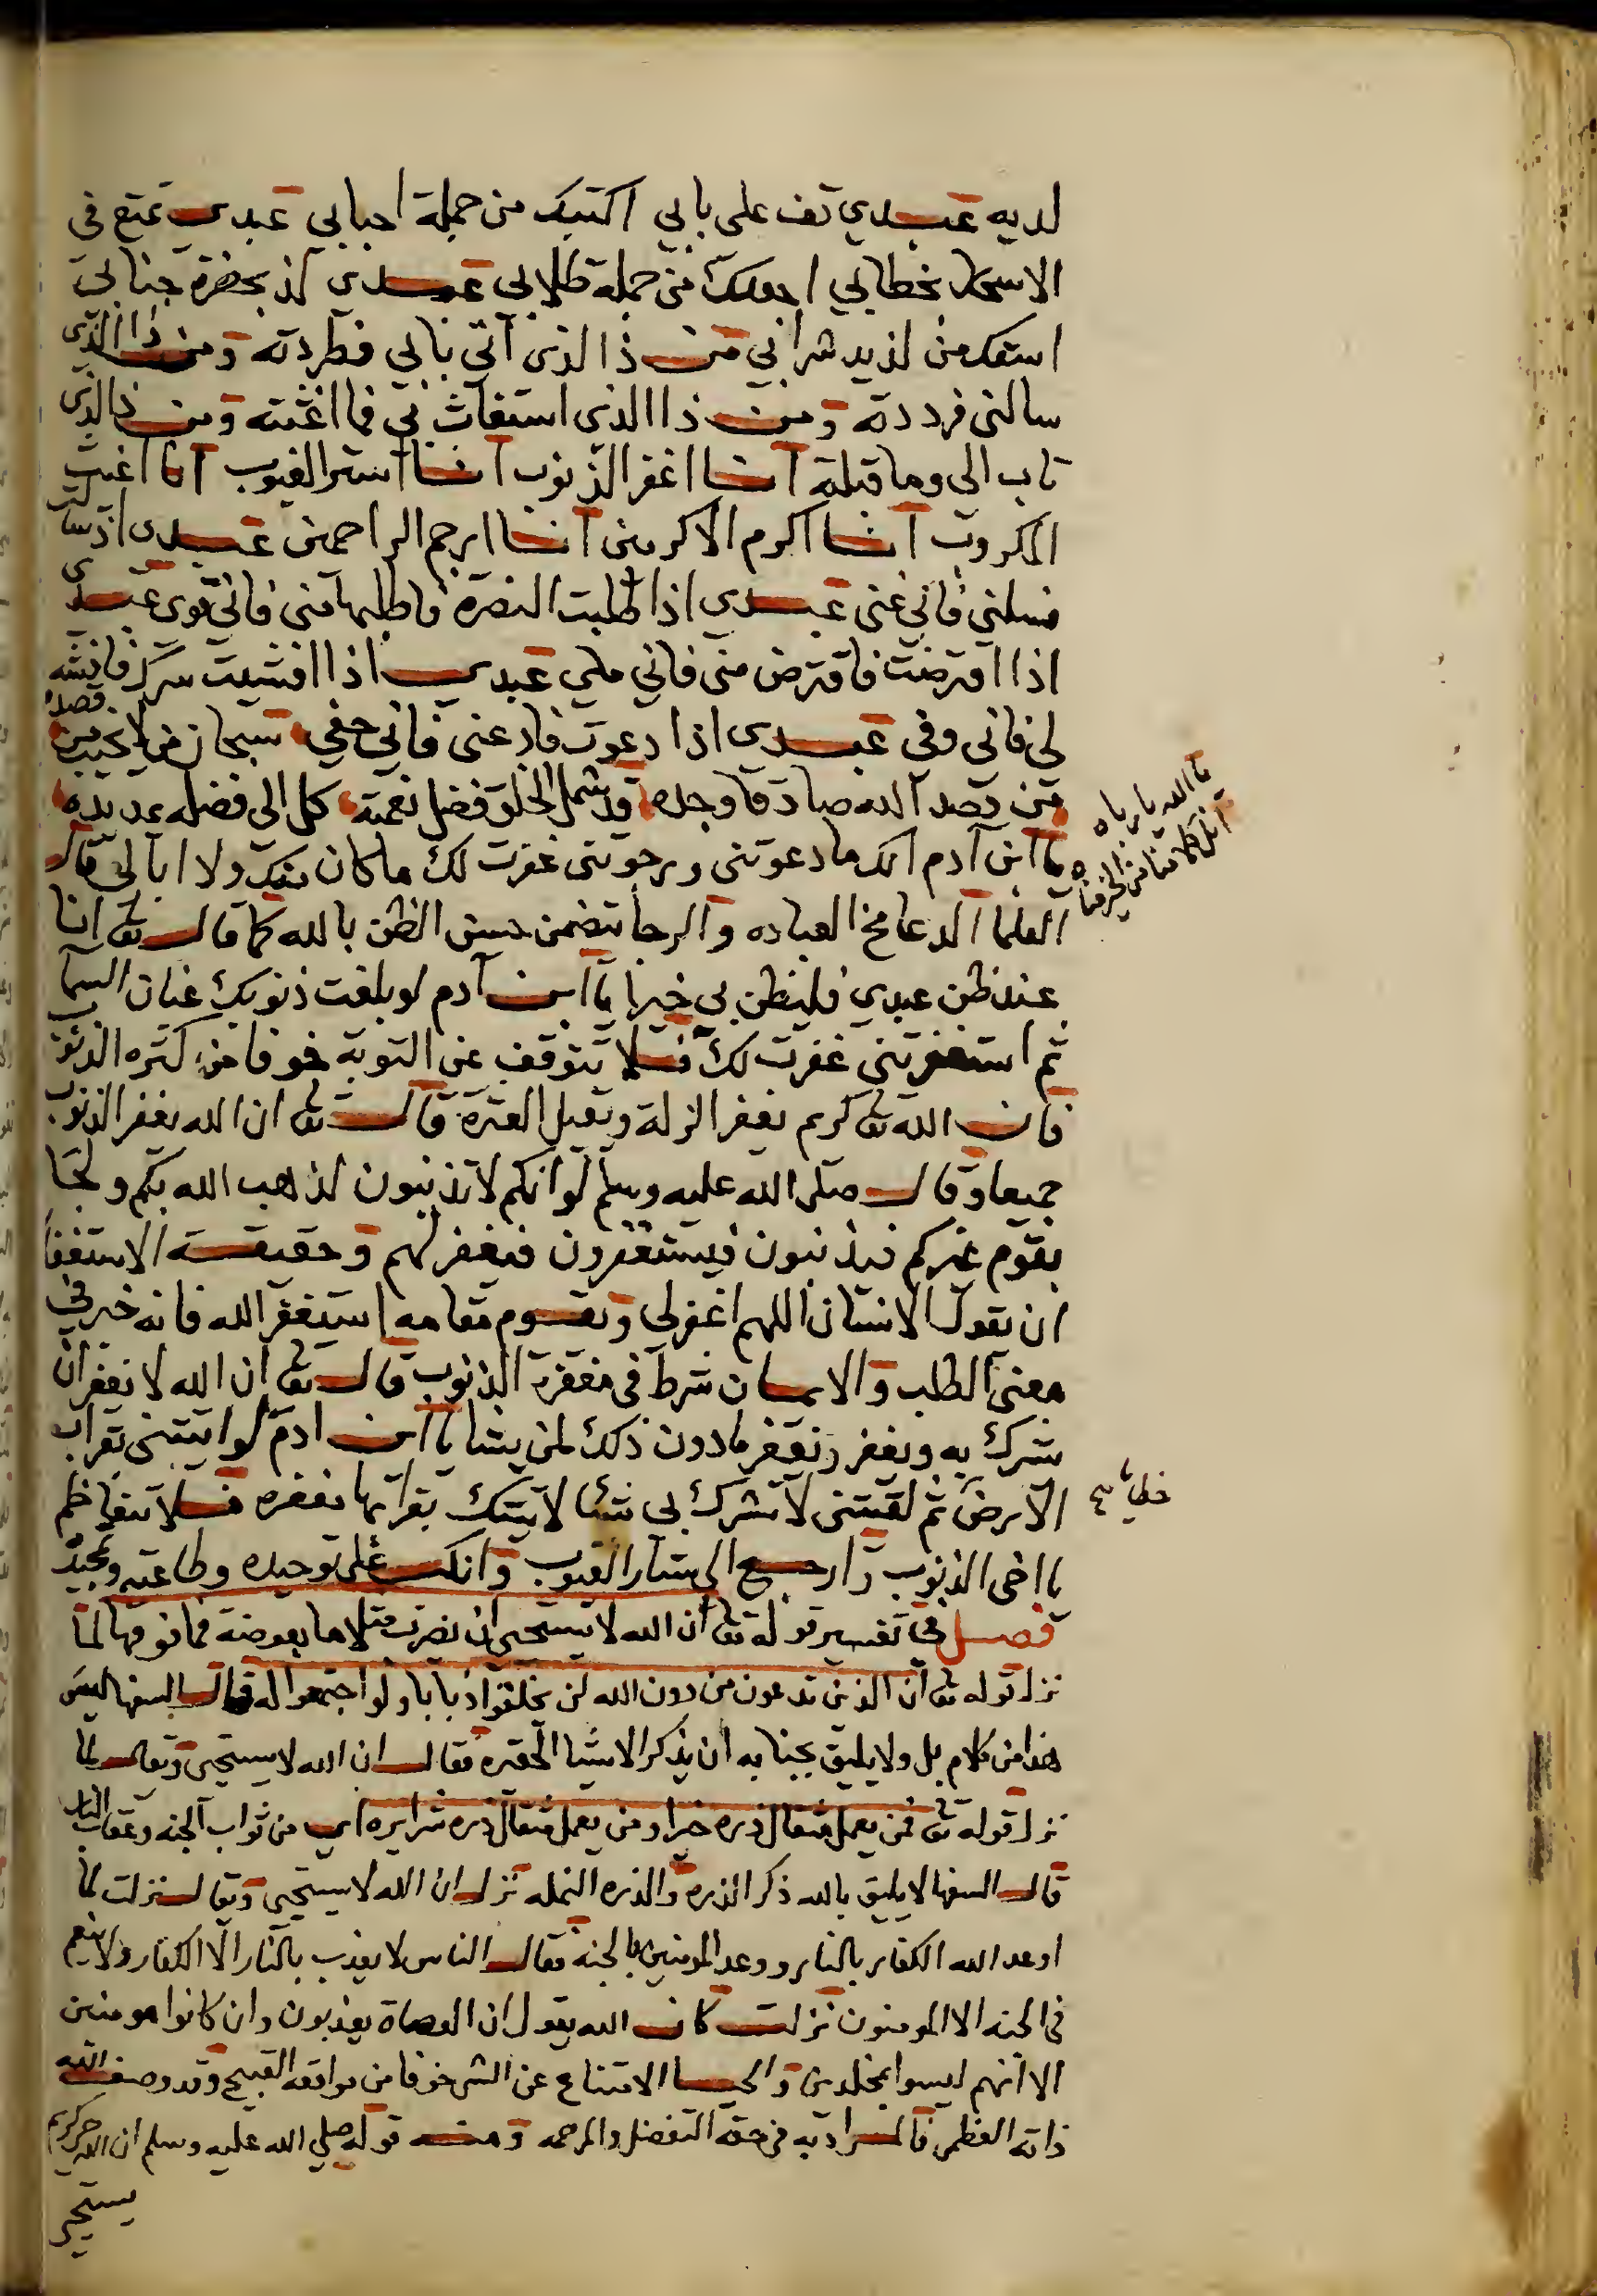 لديه عبدي قف على بابي اكتبك من جملة احبابي عبدي تمتع في
الاسحار بخطابي اجعلك من جملة طلابي عبدي لذ بحضرة جنابي
اسقك من لذيذ شرابي من ذا الذى اتي بابي فطردته ومن ذا الذى
سالنى فرددته ومن ذا الذى استغاث بي فما اغثته ومن ذا الذى
تاب الى وما قبلته انا اغفر الذنوب انا استر العيوب انا اغيث
المكروب انا اكرم الاكرمين انا ارحم الراحمين عبدى اذا سالت
فسلنى فاني غنى عبدى اذا طلبت النصرة فاطلبها منى فانى قوى عبدى
اذا اقترضت فاقترض منى فاني ملي عبدي اذا افشيت سرك فافشه
لى فانى وفي عبدي اذا دعوت فادعنى فاني حفي سبحان من لا يخيب من قصده
من قصد الله صادقا وجده قد شمل الخلق فضل نعمته كل الى فضله يمد يده
يا ابن آدم انك ما دعوتنى ورجوتنى غفرت لك ما كان منك ولا ابالى قال
العلما الدعا مخ العباده والرجا يتضمن حسن الظن بالله كما قال تعا انا
عند ظن عبدي فليظن بي خيرا يا ابن آدم لو بلغت ذنوبك عنان السما
ثم استغفرتني غفرت لك فلا تتوقف عن التوبة خوفا من كثره الذنوب
فان الله تعا كريم يغفر الزلة ويقيل العثرة قال تعا ان الله يغفر الذنوب
جميعا وقال صلى الله عليه وسلم لو انكم لا تذنبون لذهب الله بكم ولجا
بقوم غيركم فيذنبون فيستغفرون فيغفر لهم وحقيقة الاستغفا
ان يقول الانسان اللهم اغفر لى ويقوم مقامه استغفر الله فانه خبر في
معنى الطلب والايمان شرط فى مغفرة الذنوب قال تعا ان الله لا يغفر ان
يشرك به ويغفر ويغفر ما دون ذلك لمن يشا يا ابن ادم لو اتيتنى بقراب
الارض ثم لقيتنى لا تشرك بى شيئا لاتيتك بقرابها مغفره فلا تتعاظم
يا اخى الذنوب وارجع الى ستار العيوب وانكب على توحيده وطاعته وتمجيد
فصل في تفسير قوله تعا ان الله لا يستحيى ان يضرب مثلا ما بعوضة فما فوقها لما
نزل قوله تعا ان الذين تدعون من دون الله لن يخلقوا ذبابا ولو اجتمعوا له قال السفها ليس
هذا من كلام بل ولا يليق بجنابه ان يذكر الاشيا الحقيره فقال ان الله لا يستحيى وتعالى لما
نزل قوله تعا فمن يعمل مثقال ذره خيرا ومن يعمل مثقال ذره شرا يره اي من ثواب الجنه وعقاب النار
قال السفها لا يليق بالله ذكر الذره والذره النمله نزل ان الله لا يستحيى وتقال نزلت لما
اوعد الله الكفار بالنار ووعد المومنين بالجنة فقال الناس لا يعذب بالنار الا الكفار ولا ينعم
فى الجنه الا المومنون نزلت كان الله يقول ان العصاة يعذبون وان كانوا مومنين
الا انهم ليسوا بمخلدين والحيا الامتناع عن الشى خوفا من مواقعه القبيح وقد وصف الله
ذاته العظمى فالمراد به فى حقه التفضل والرحمه ومنه قوله صلي الله عليه وسلم ان الله حى كريم
يستحيى
يا الله يا رباه
خطايا صح